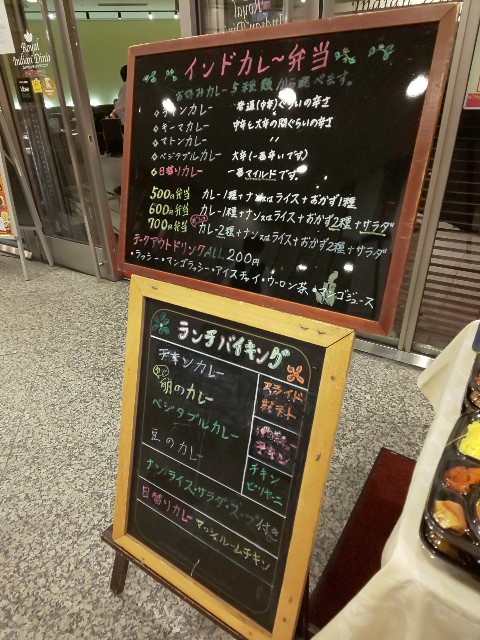 Royal
Indian Dinin
インドカレー弁当
お好みカレー5種類から選べます。
◇チキンカレー 普通(中辛)ぐらいの辛さ
◇キーマカレー 中辛と大辛の間ぐらいの辛さ
◇マトンカレー 〃
◇ベジタブルカレー 大辛(一番辛いです)
◇日替りカレー 一番マイルドです
500円弁当 カレー1種+ナン又はライス+おかず1種
600円弁当 カレー1種+ナン又はライス+おかず2種+サラダ
700円弁当 カレー2種+ナン又はライス+おかず2種+サラダ
テークアウトドリンクALL 200円
・ラッシー・マンゴラッシー・アイスチャイ・ウーロン茶・マンゴジュース
ランチバイキング
チキンカレー
卵のカレー
ベジタブルカレー
豆のカレー
フライド
ポテト
チキン
チキン
ビリヤーニ
ナン・ライス・サラダ・スープ付き
日替りカレー マッシュルームチキン